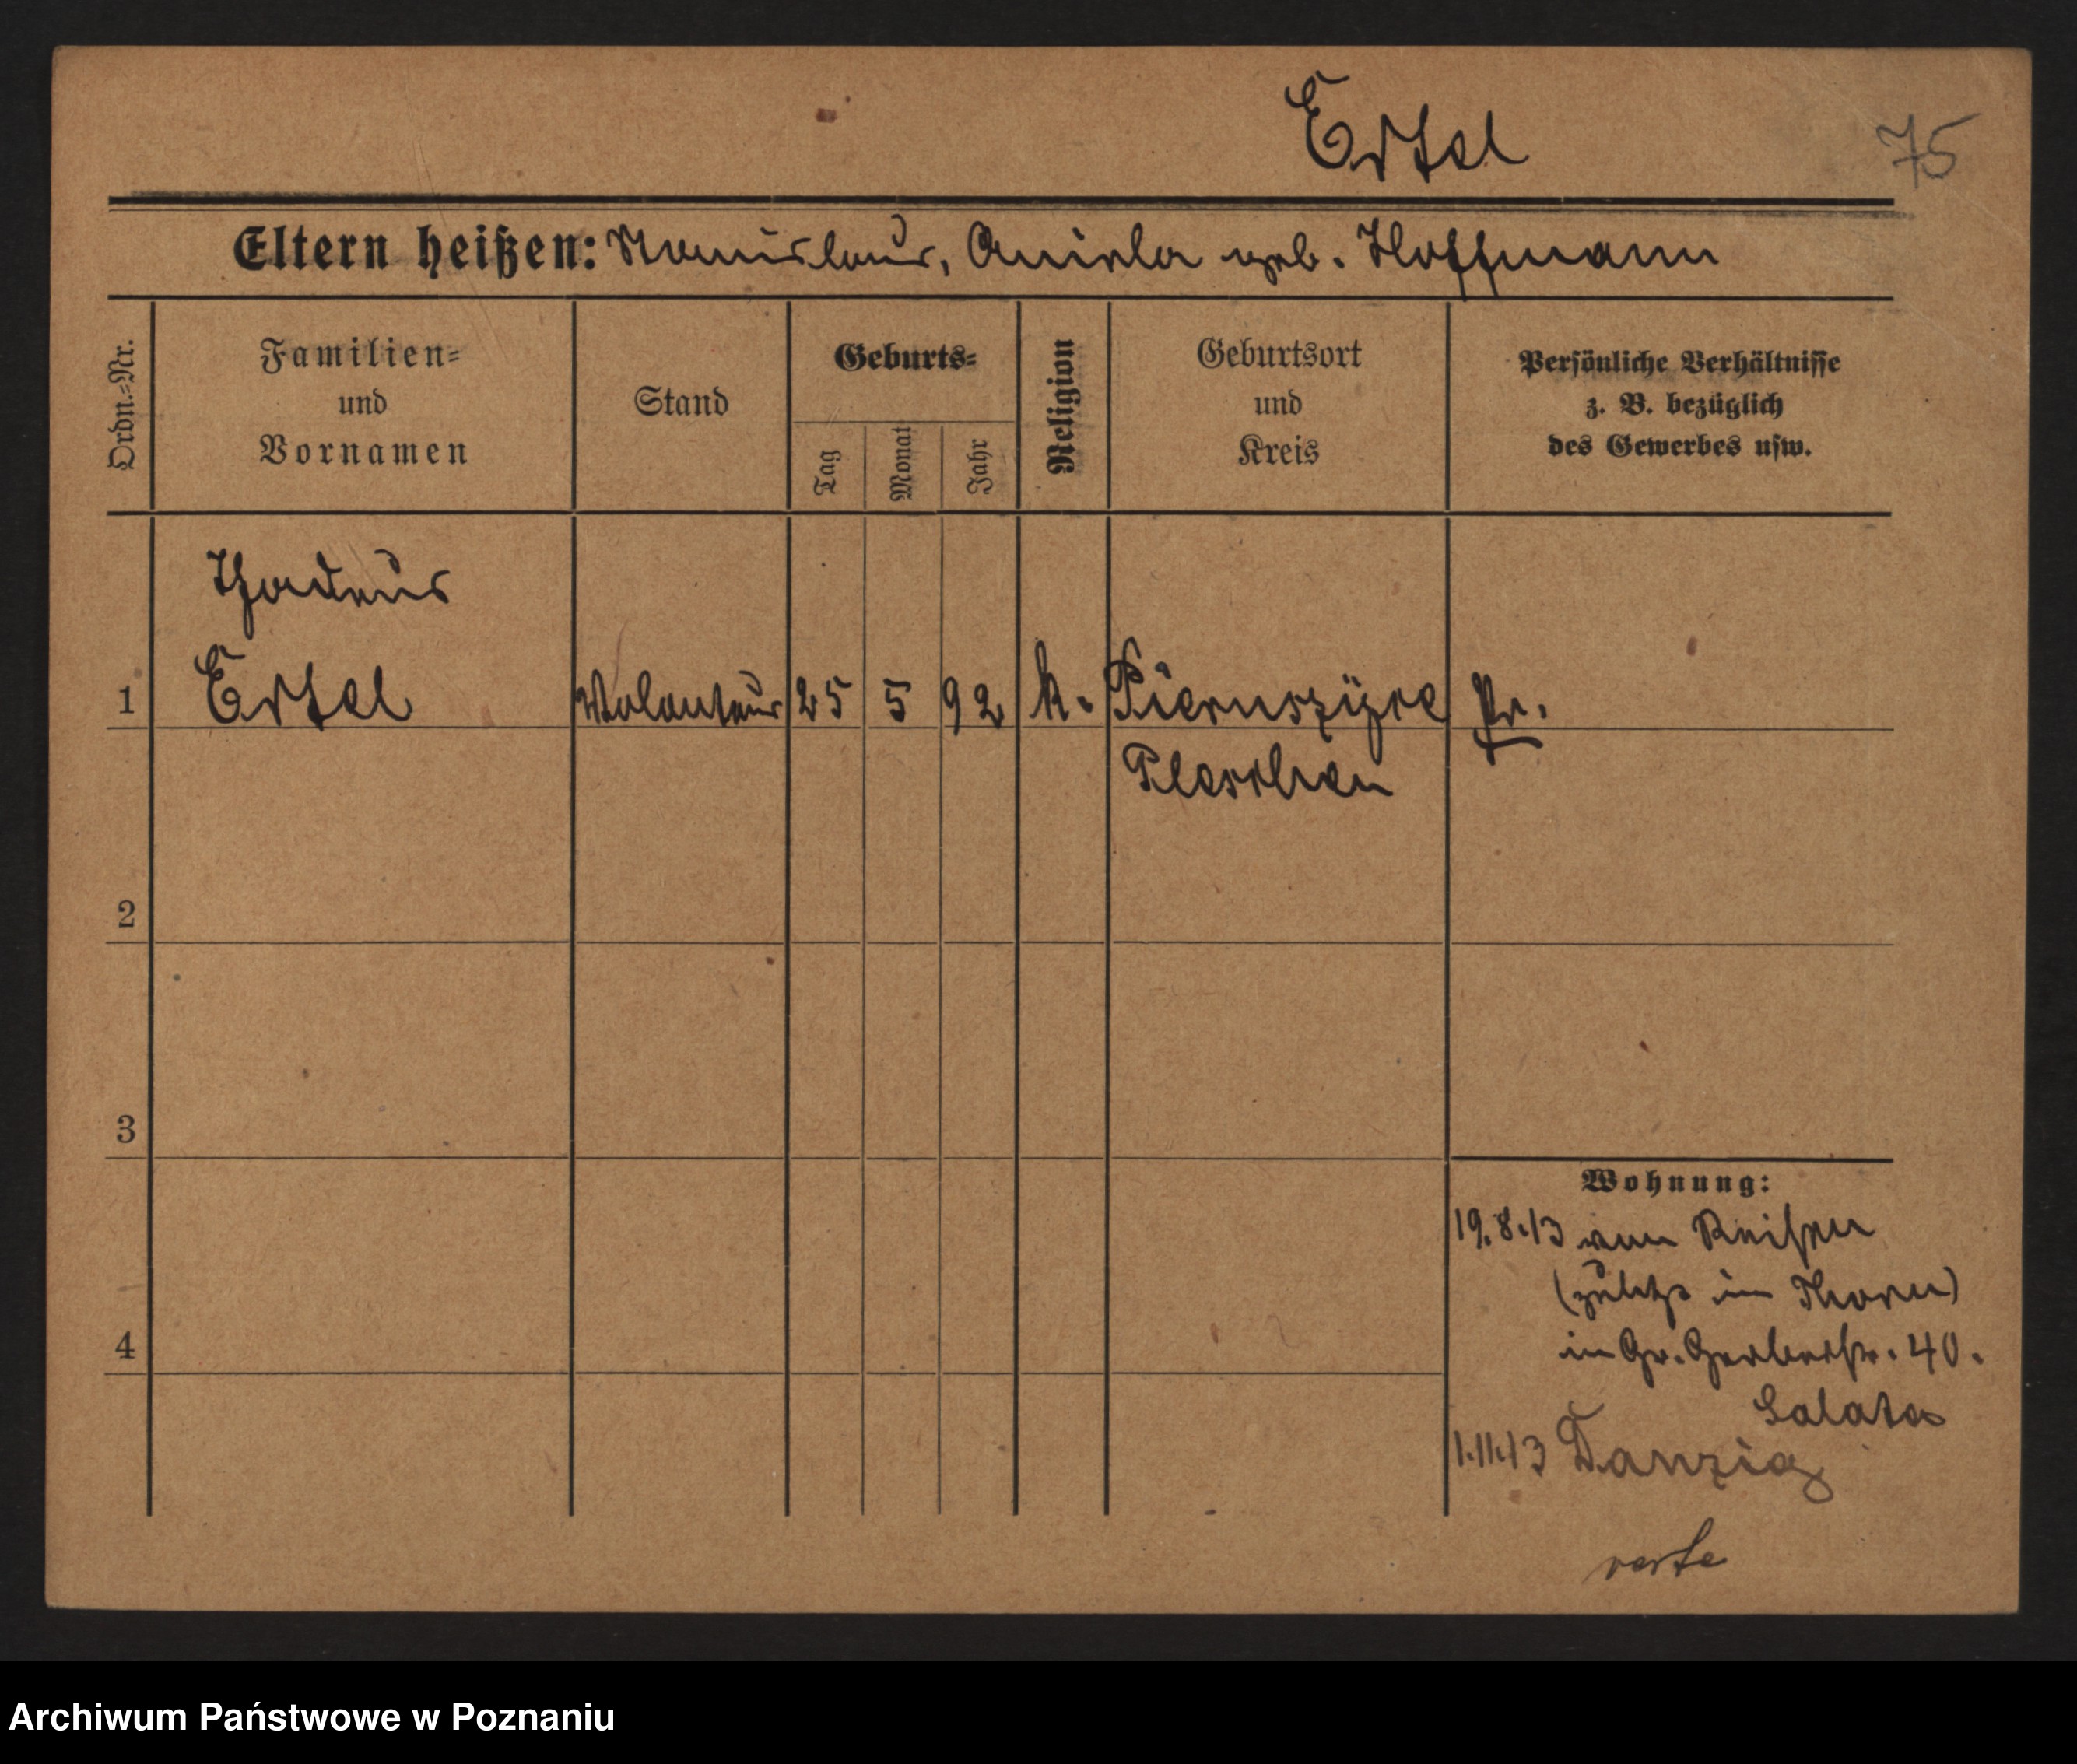 Ertel
75
Eltern heißen: Stanislaus, Aniela geb. Hoffmann
Ordn.-Nr.
Familien-
und
Vornamen
Stand
Geburts-
Tag
Monat
Jahr
Religion
Geburtsort
und
Kreis
Persönliche Verhältnisse
z. B. bezüglich
des Gewerbes usw.
Thadeus
1 Ertel Volonteur 25 5 92 k. Pr.
Pleschen
2
3
Wohnung:
19.8.13 von Reisen
(zuletzt in Thorn)
in Gr. Gerberstr. 40.
4
1.11.13 Danzig
verte
Archiwum Państwowe w Poznaniu